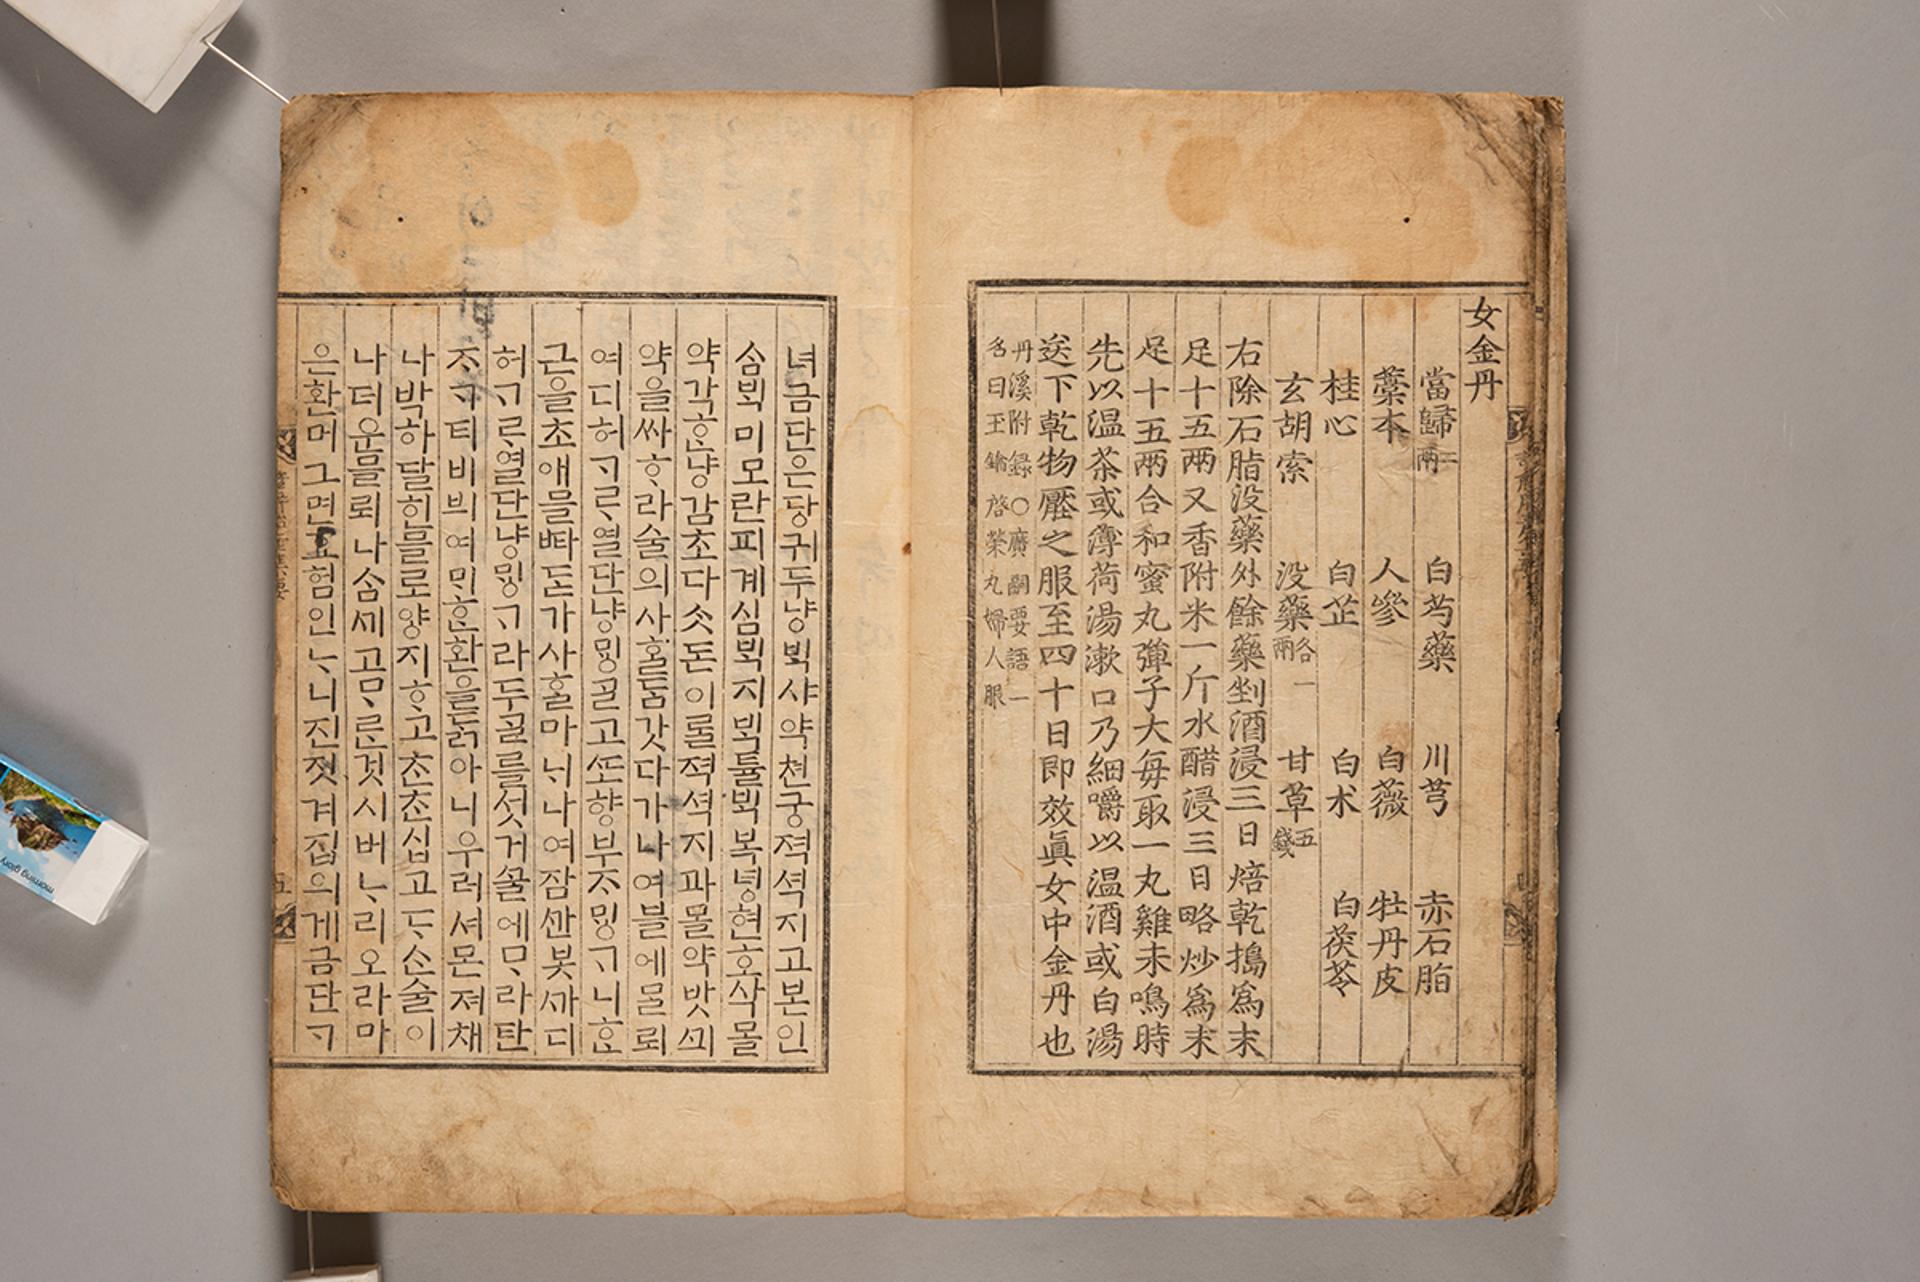 女金丹
當歸二兩 白芍藥 川芎 赤石脂
藁本 人參 白薇 牡丹皮
桂心 白芷 白朮 白茯苓
玄胡索 没藥各一兩 甘草五錢
右除石脂没藥外餘藥剉酒浸三日焙乾搗爲末
足十五兩又香附米一斤水醋浸三日略炒爲末
足十五兩合和蜜丸彈子大每取一丸雞未鳴時
先以温茶或薄荷湯漱口乃細嚼以温酒或白湯
送下乾物壓之服至四十日即效眞女中金丹也
丹溪附録○廣嗣要語一
名曰王鑰啓榮丸婦人服
녀금단은당귀두냥ᄇᆡᆨ샤약쳔궁젹셕지고본인
ᄉᆞᆷᄇᆡᆨ미모란피계심ᄇᆡᆨ지ᄇᆡᆨ튤ᄇᆡᆨ복녕현호삭몰
약각ᄒᆞᆫ냥감초다ᄉᆞᆺ돈이ᄅᆞᆯ젹셕지과몰약밧ᄭᅴ
약을싸ᄒᆞ라술의사ᄒᆞᆯᄃᆞᆷ갓다가나여블에ᄆᆞᆯ뢰
여디허ᄀᆞᄅᆞ열단냥ᄆᆡᆼᄀᆞᆯ고ᄯᅩ향부ᄌᆞᄆᆡᆼᄀᆞ니ᄒᆞᆫ
근을초애믈ᄠᅡ돈가사ᄒᆞᆯ마ᄂᆡ나여잠ᄭᅡᆫ봇ᄭᅡ디
허ᄀᆞᄅᆞ열단냥ᄆᆡᆼᄀᆞ라두ᄀᆞᆯᄅᆞᆯ섯거ᄭᅮᆯ에ᄆᆞ라탄
ᄌᆞᄀᆞ티비븨여ᄆᆡᄒᆞᆫ환을ᄃᆞᆰ아니우러셔몬져채
나박하달힌믈로양지ᄒᆞ고ᄎᆞᆫᄎᆞᆫ십고ᄃᆞᄉᆞᆫ술이
나더운믈뢰나ᄉᆞᆷᄭᅵ고ᄆᆞᄅᆞᆫ것시버ᄂᆞ리오라마
은환머그면효험인ᄂᆞ니진짓겨집의게금단ᄀᆞ
morning glory